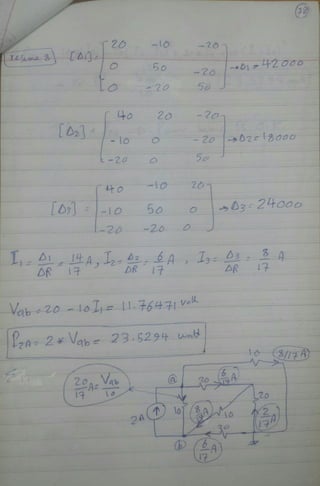 [Δ1] = [20 -10 -20
0 50 -20
0 -20 50] → Δ1 = 42000
[Δ2] = [40 20 -20
-10 0 -20
-20 0 50] → Δ2 = 18000
[Δ3] = [40 -10 20
-10 50 0
-20 -20 0] → Δ3 = 24000
I1 = Δ1/ΔR = 14/17 A, I2 = Δ2/ΔR = 6/17 A, I3 = Δ3/ΔR = 8/17 A
Vab = 20 - 10 I1 = 11.76471 volt
P2A = 2 * Vab = 23.5294 watt
10 8/17 A
20/17 A = Vab/10
a 20 6/17 A
2A 10 8/17 A 10 20 2/17 A
b 30
6/17 A